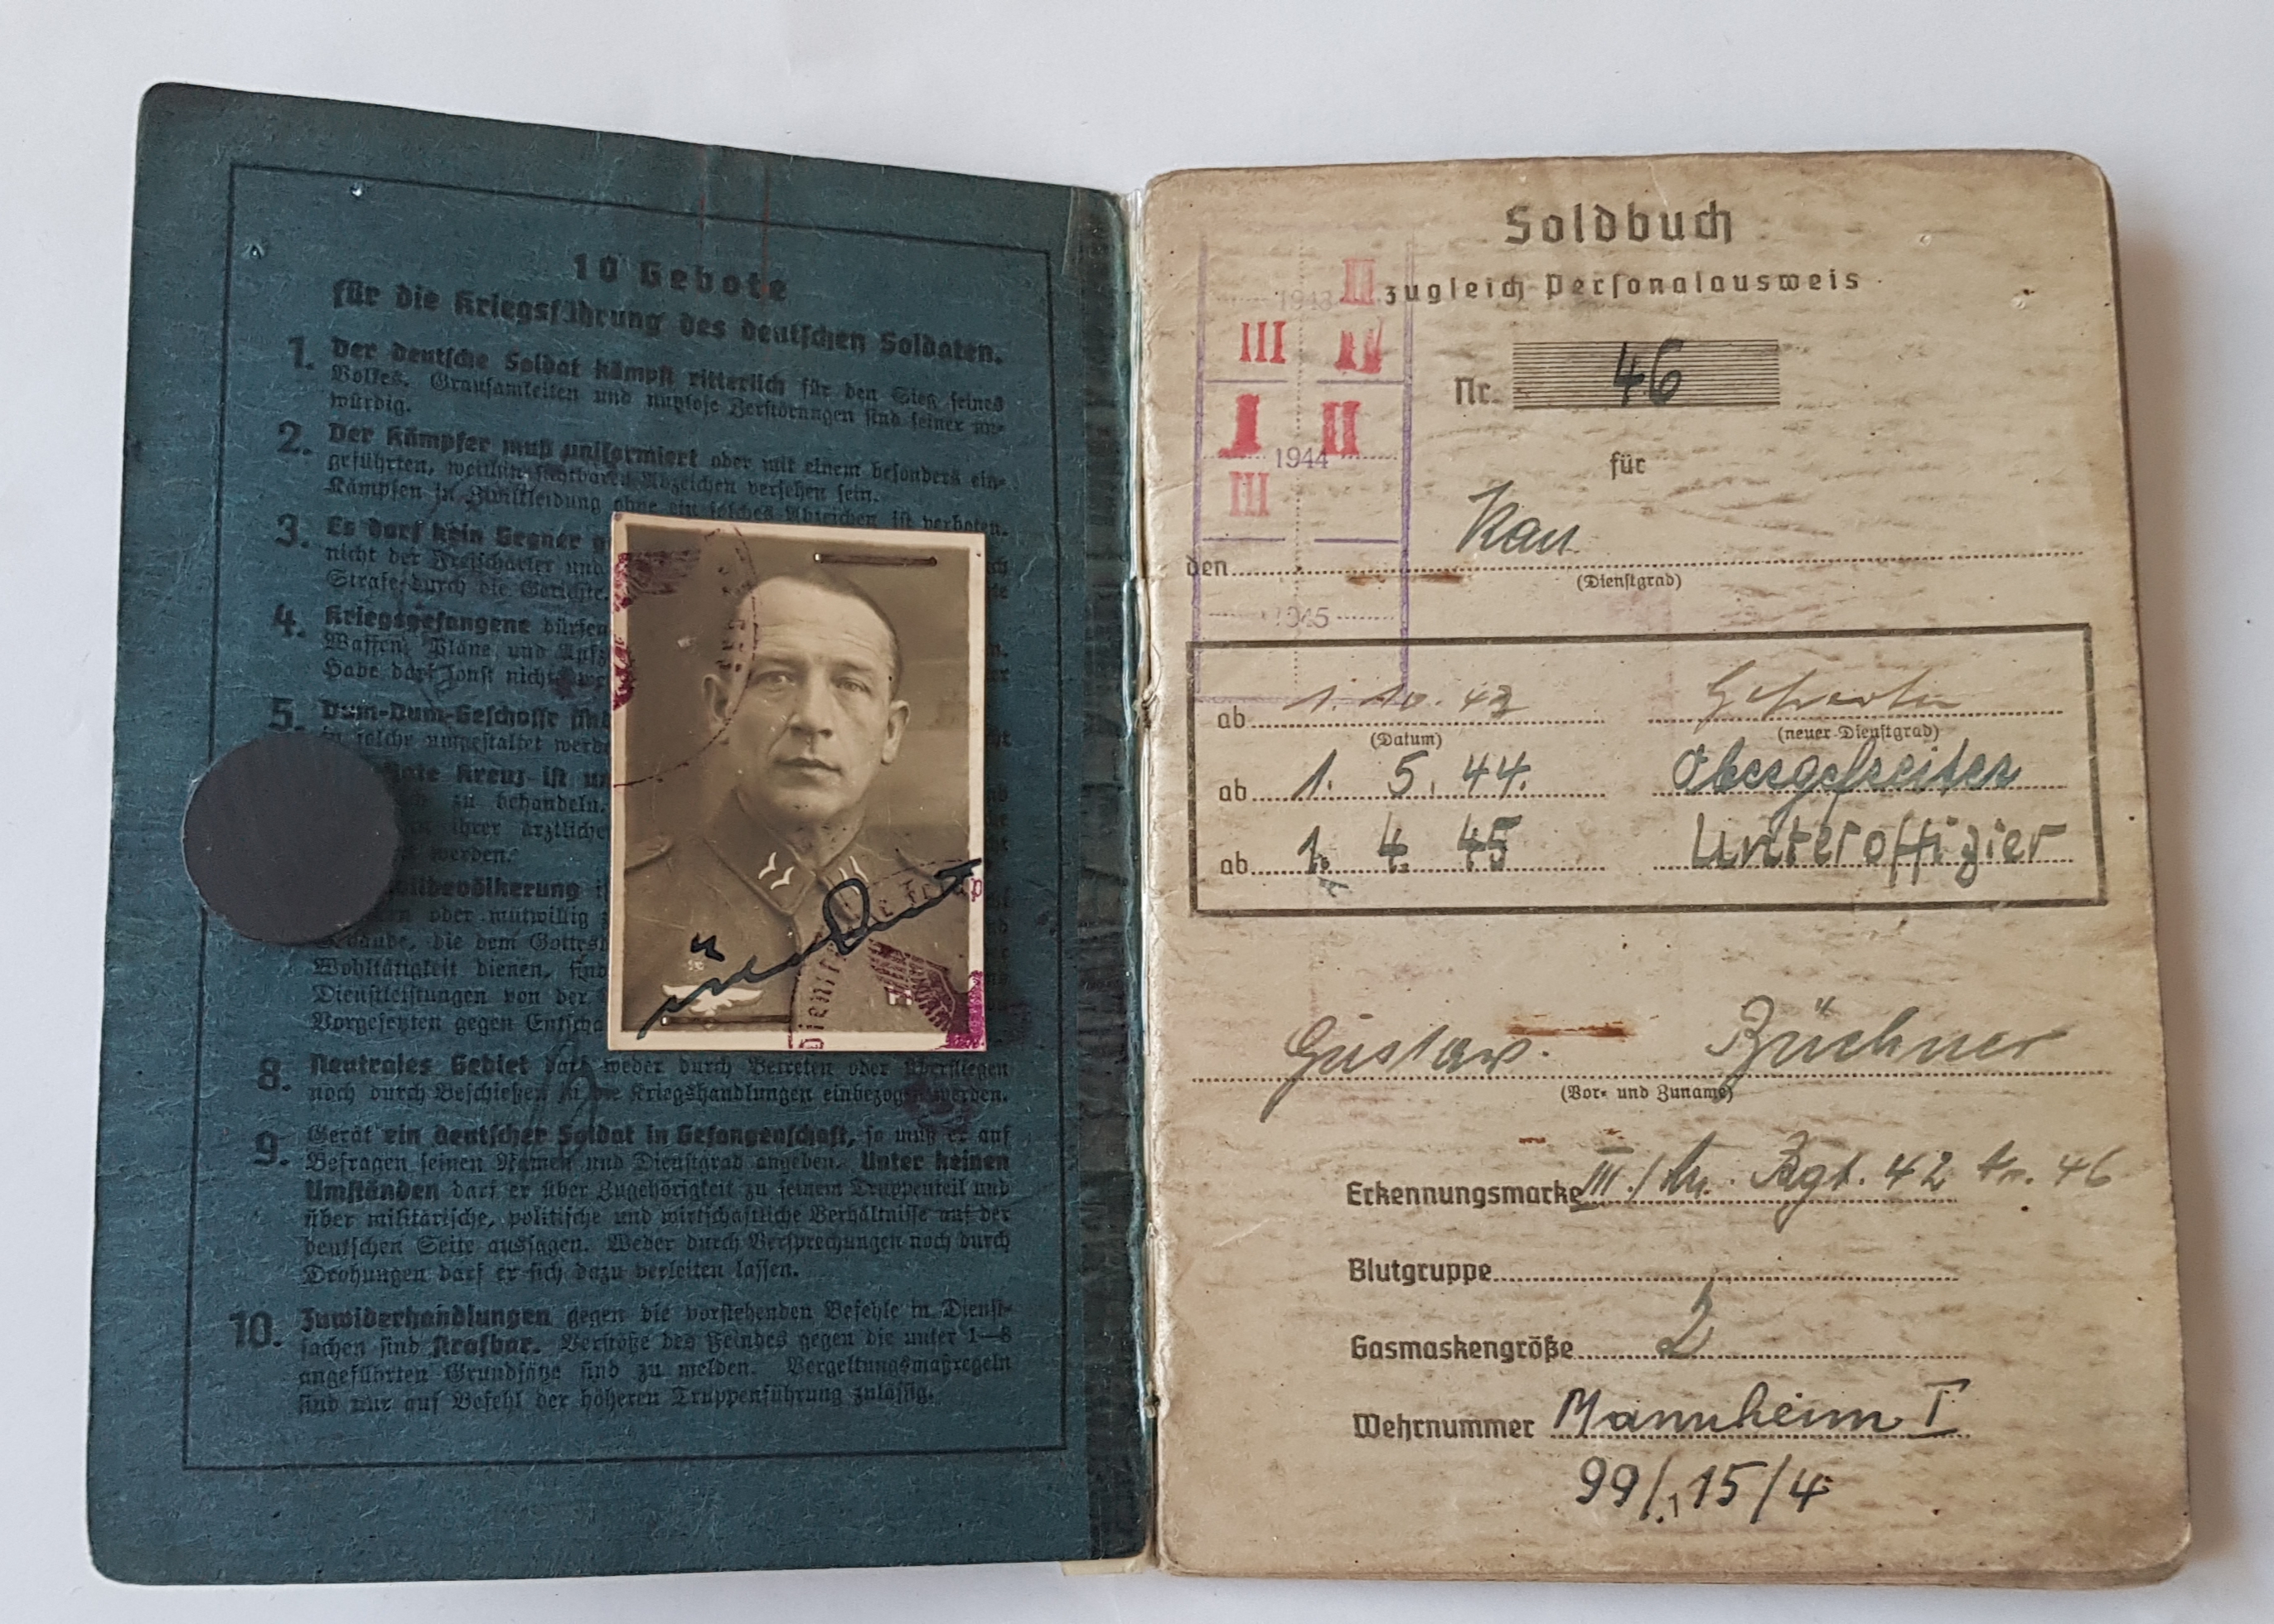 10 Gebote
für die Kriegsführung des deutschen Soldaten.
1. Der deutsche Soldat kämpft ritterlich für den Sieg seines
Volkes. Grausamkeiten und nutzlose Zerstörungen sind seiner un-
würdig.
2. Der Kämpfer muß uniformiert oder mit einem besonders ein-
geführten, weithin sichtbaren Abzeichen versehen sein.
Kämpfen in Zivilkleidung ohne ein solches Abzeichen ist verboten.
3. Es darf kein Gegner
nicht der Freischärler und
Strafe durch die Gerichte
4. Kriegsgefangene dürfen
Waffen, Pläne und Aufz
Habe darf sonst nicht
5. Dum-Dum-Geschosse sind
in solche umgestaltet werd
Rote Kreuz ist un
zu behandeln.
ihrer ärztliche
werden.
ilbevölkerung
oder mutwillig
die dem Gottesd
Wohltätigkeit dienen, sind
Dienstleistungen von der
Vorgesetzten gegen Entscha
8. Neutrales Gebiet darf weder durch Betreten oder Überfliegen
noch durch Beschießen in die Kriegshandlungen einbezogen werden.
9. Gerät ein deutscher Soldat in Gefangenschaft, so muß er auf
Befragen seinen Namen und Dienstgrad angeben. Unter keinen
Umständen darf er über Zugehörigkeit zu seinem Truppenteil und
über militärische, politische und wirtschaftliche Verhältnisse auf der
deutschen Seite aussagen. Weder durch Versprechungen noch durch
Drohungen darf er sich dazu verleiten lassen.
10. Zuwiderhandlungen gegen die vorstehenden Befehle in Dienst-
sachen sind strafbar. Verstöße des Feindes gegen die unter 1—8
angeführten Grundsätze sind zu melden. Vergeltungsmaßregeln
sind nur auf Befehl der höheren Truppenführung zulässig.
Soldbuch
zugleich Personalausweis
1943 II
III IV
I II
1944
III
1945
Nr. 46
für
den Kan
(Dienstgrad)
ab 1. 10. 43 Gefreiter
(Datum) (neuer Dienstgrad)
ab 1. 5. 44. Obergefreiter
ab 1. 4. 45 Unteroffizier
Gustav Züchner
(Vor- und Zuname)
Erkennungsmarke III / Rgt. 42 46
Blutgruppe
Gasmaskengröße 2
Wehrnummer Mannheim I
99/1 15/4